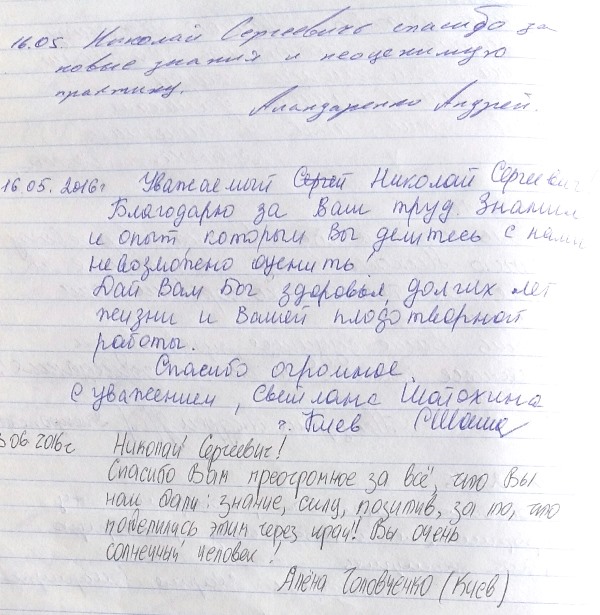 16.05. Николай Сергеевич спасибо за
новые знания и неоценимую
практику.
Андрей.
16.05.2016г Уважаемый Сергей Николай Сергеевич
Благодарю за Ваш труд. Знания
и опыт, которым Вы делитесь с нами
невозможно оценить!
Дай Вам Бог здоровья, долгих лет
жизни и Вашей плодотворной
работы.
Спасибо огромное.
С уважением, Светлана Шатохина
г. Киев
06.2016г Николай Сергеевич!
Спасибо Вам преогромное за всё, что Вы
нам дали: знание, силу, позитив, за то, что
поделились этим через край!! Вы очень
солнечный человек!
Алёна Головченко (Киев)